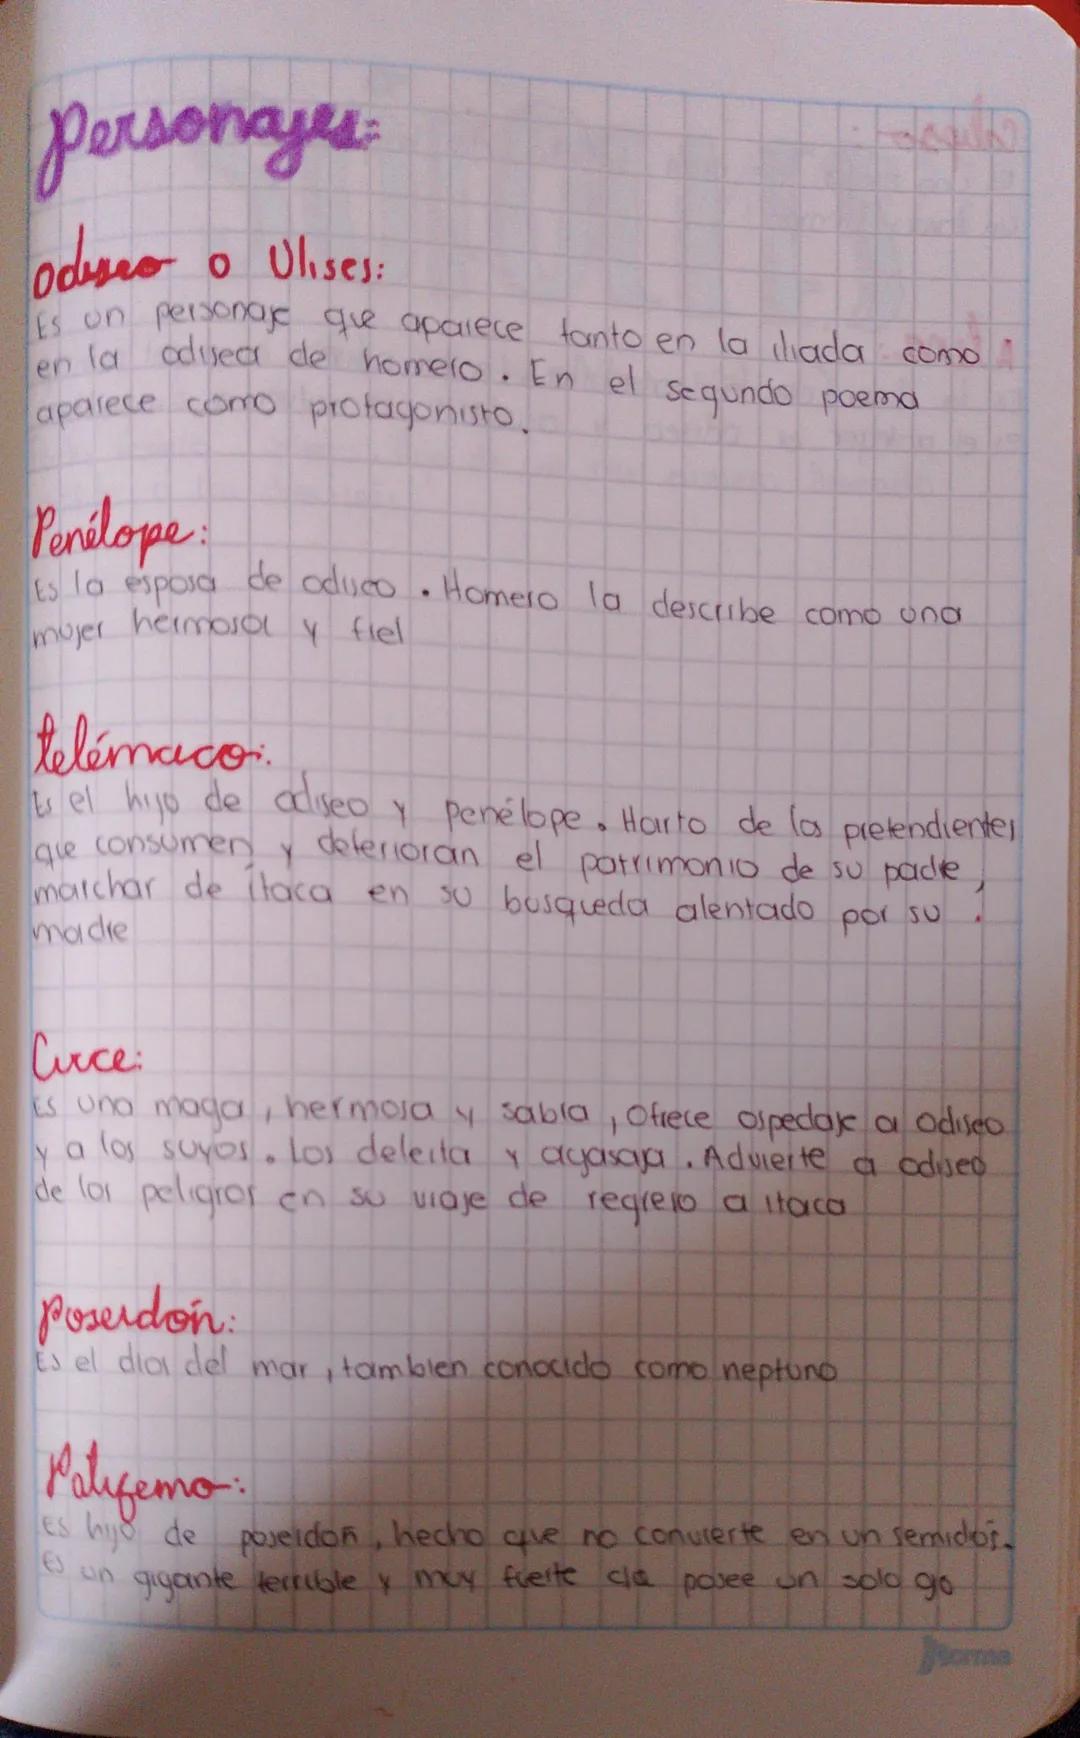 Personajes:
Odiseo o Ulises:
Es un personaje que aparece tanto en la iliada como
en la odisea de homero. En el segundo poema
aparece como protagonista.
Penélope:
Es la esposa de odiseo. Homero la describe como una
mujer hermosa y fiel
telémaco:
Es el hijo de odiseo y penélope. Harto de los pretendientes
que consumen y deterioran el patrimonio de su padre,
marchar de ítaca en su busqueda alentado por su
madre
Circe:
Es una maga, hermosa y sabia, Ofrece ospedaje a Odiseo
y a los suyos. Los deleita y agasaja. Advierte a odiseo
de los peligros en su viaje de regreso a itaca
Poseidón:
Es el dios del mar, tambien conocido como neptuno
Polifemo:
Es hijo de poseidon, hecho que no convierte en un semidios.
Es un gigante terrible y muy fuerte posee un solo ojo
Norma